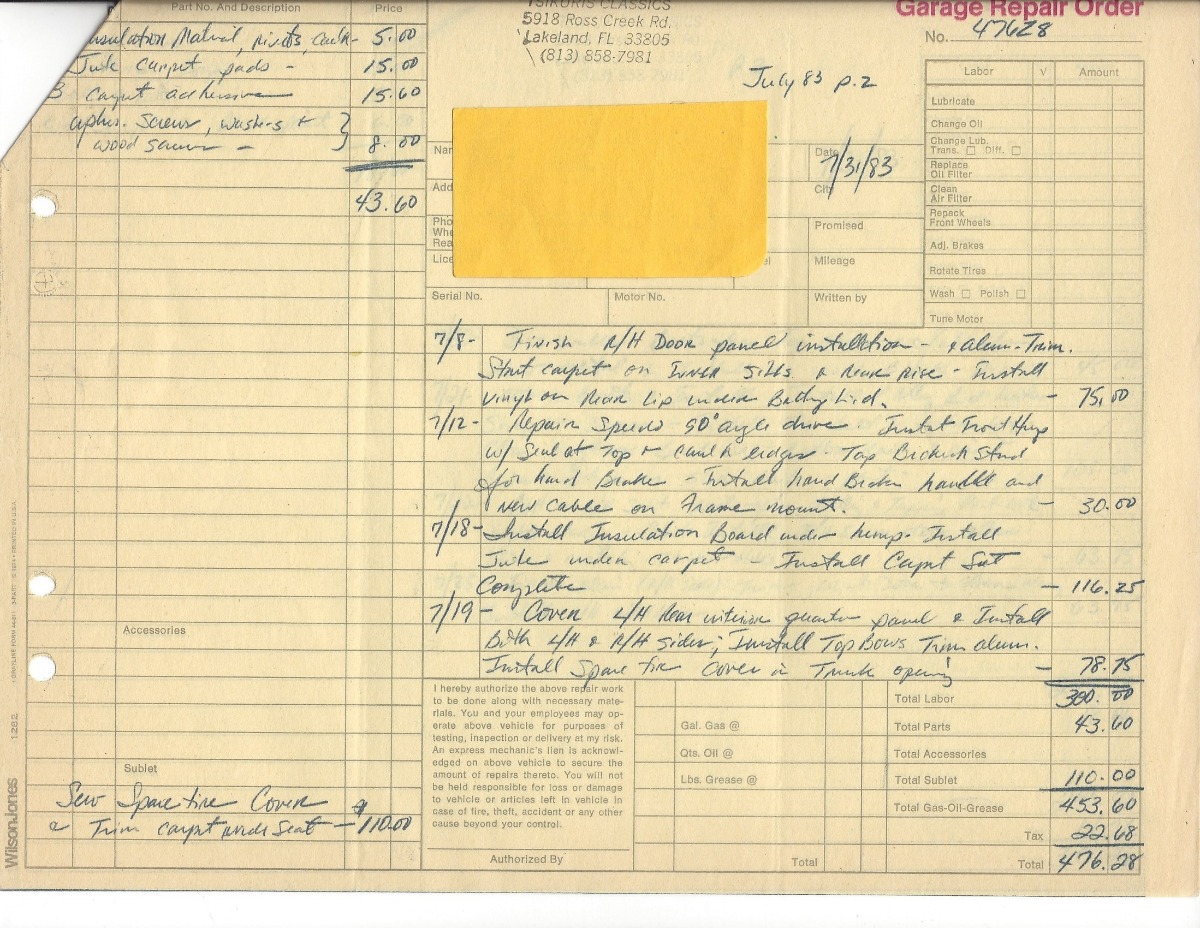 Part No. And Description Price
Insulation Material, rivets, caulk- 5.00
Jute carpet pads - 15.00
3 carpet adhesive 15.60
screws, washers +
wood screws - 8.00
43.60
Accessories
Sublet
Sew Spare tire Cover
Trim carpet under Seat - $110.00
TSIKURIS CLASSICS
5918 Ross Creek Rd.
Lakeland, FL 33805
(813) 858-7981
Garage Repair Order
No. 47628
July 83 p.2
Date 7/31/83
City
Promised
Mileage
Serial No. Motor No. Written by
Labor √ Amount
Lubricate
Change Oil
Change Lub.
Trans. Diff.
Replace
Oil Filter
Clean
Air Filter
Repack
Front Wheels
Adj. Brakes
Rotate Tires
Wash Polish
Tune Motor
7/8- Finish R/H Door panel installation - & alum. Trim.
Start carpet on Inner Sills & Rear rise - Install
vinyl on Rear Lip under Battery Lid. - 75.00
7/12- Repair Speedo 90° angle drive. Install Front
w/ Seal at Top + caulk edges - Tap Bracket Stud
for hand Brake - Install hand Brake handle and
New cable on Frame mount. - 30.00
7/18- Install Insulation Board under hump. Install
Jute under carpet - Install Carpet Set
Complete - 116.25
7/19- Cover L/H Rear interior quarter panel & Install
Both L/H & R/H sides; Install Top Bows Trim alum.
Install Spare tire Cover in Trunk opening - 78.75
I hereby authorize the above repair work
to be done along with necessary mate-
rials. You and your employees may op-
erate above vehicle for purposes of
testing, inspection or delivery at my risk.
An express mechanic's lien is acknowl-
edged on above vehicle to secure the
amount of repairs thereto. You will not
be held responsible for loss or damage
to vehicle or articles left in vehicle in
case of fire, theft, accident or any other
cause beyond your control.
Authorized By
Gal. Gas @
Qts. Oil @
Lbs. Grease @
Total
Total Labor 300.00
Total Parts 43.60
Total Accessories
Total Sublet 110.00
Total Gas-Oil-Grease 453.60
Tax 22.68
Total 476.28
WilsonJones
1282